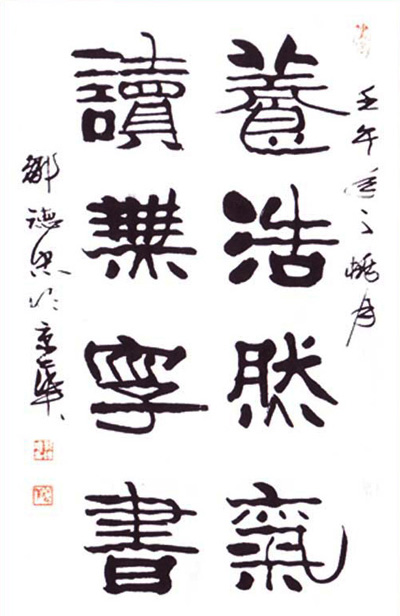 壬午之桃月
養浩然氣
讀無字書
鄒德忠於京華